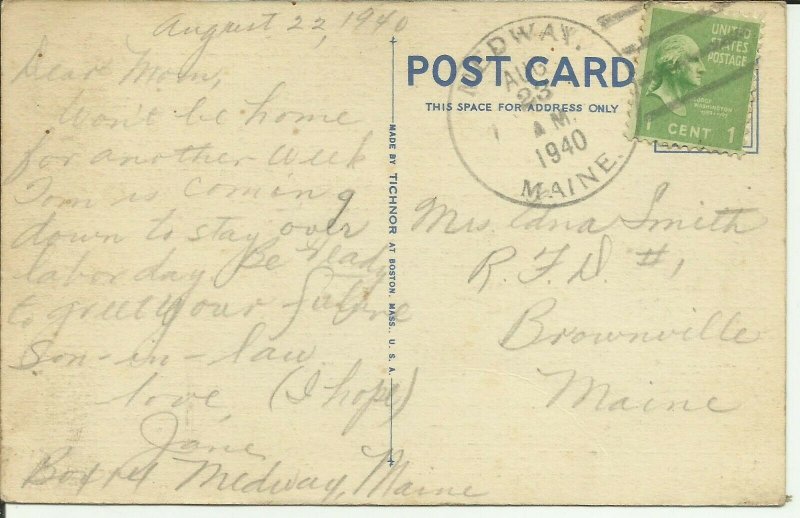 August 22, 1940
Dear Mom,
Won't be home
for another week
Tom is coming
down to stay over
labor day Be Ready
to greet your future
son-in-law
love, (I hope)
Jane
Medway, Maine
POST CARD
THIS SPACE FOR ADDRESS ONLY
MADE BY TICHNOR AT BOSTON, MASS., U. S. A.
MEDWAY.
AUG
23
A.M.
1940
MAINE.
UNITED
STATES
POSTAGE
GEORGE
WASHINGTON
1 CENT 1
Mrs. Edna Smith
R.F.D. #1
Brownville
Maine